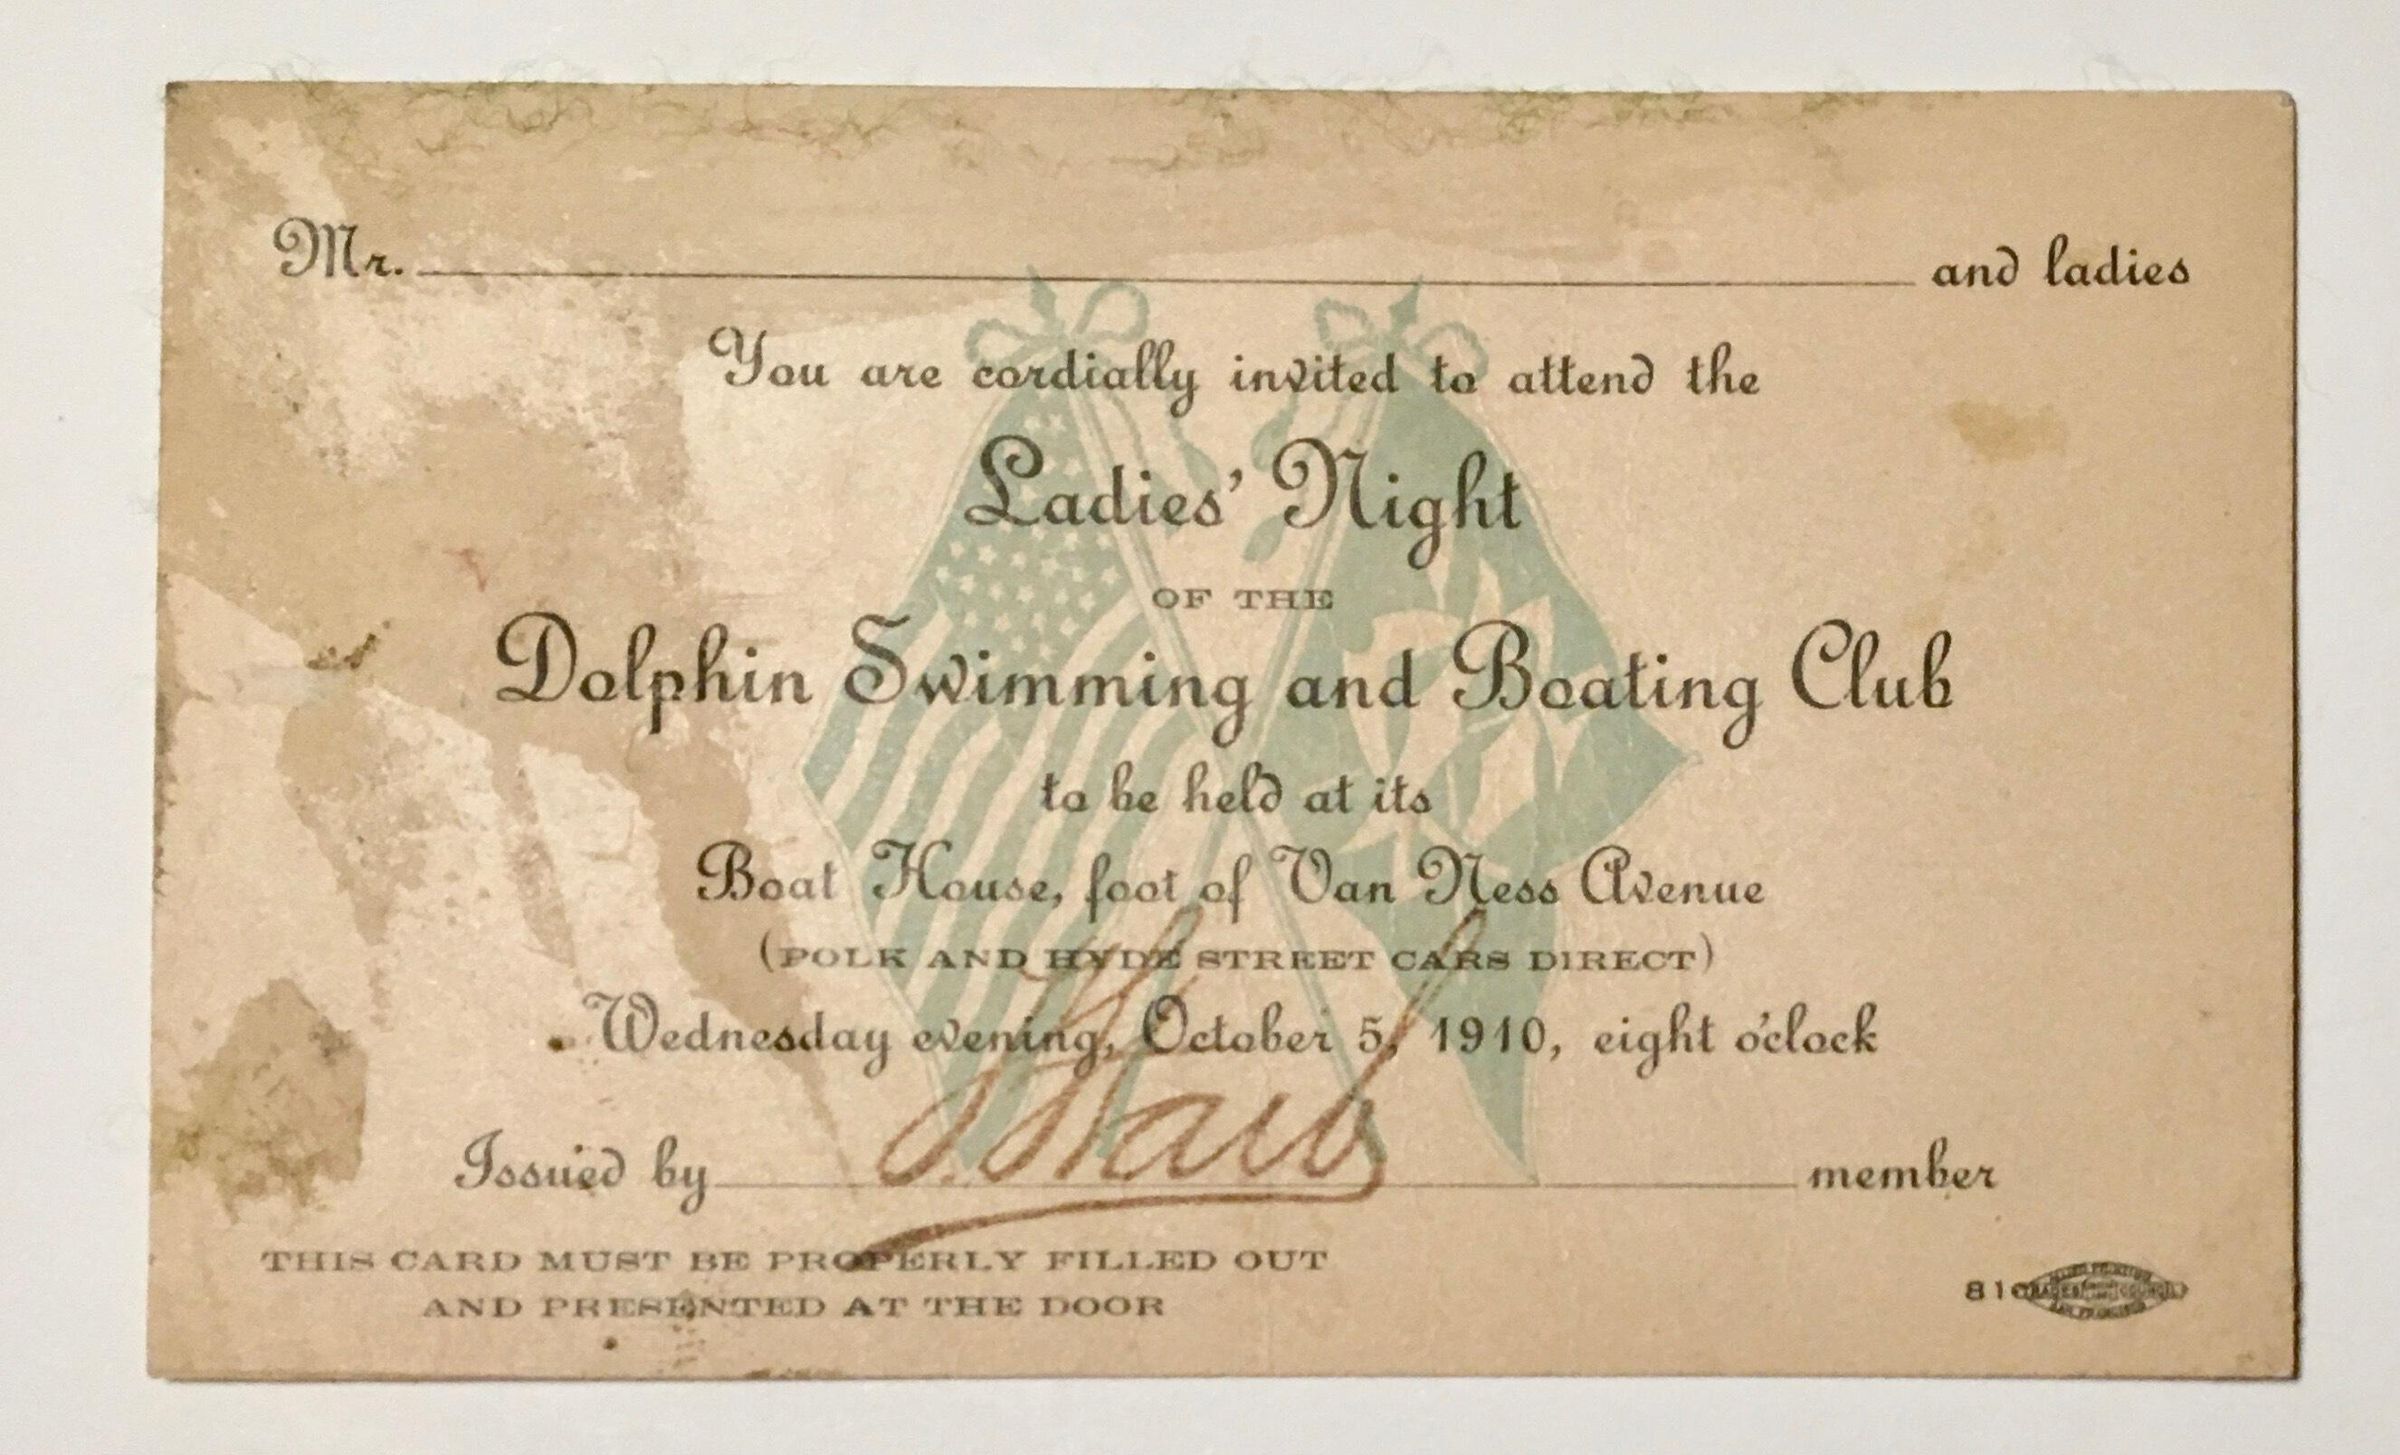 Mr. and ladies
You are cordially invited to attend the
Ladies' Night
OF THE
Dolphin Swimming and Boating Club
to be held at its
Boat House, foot of Van Ness Avenue
(POLK AND HYDE STREET CARS DIRECT)
Wednesday evening, October 5, 1910, eight o'clock
Issued by member
THIS CARD MUST BE PROPERLY FILLED OUT
AND PRESENTED AT THE DOOR